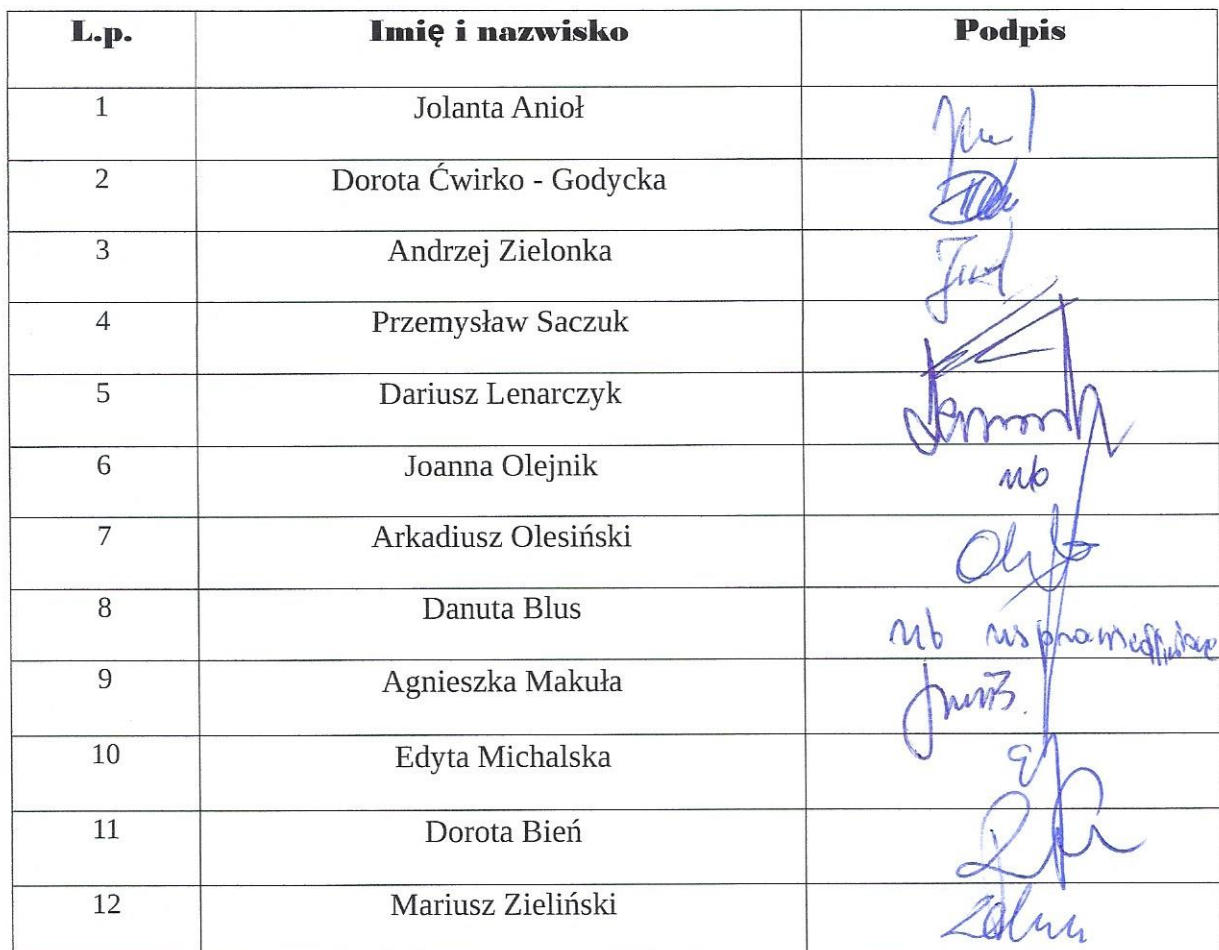 L.p. Imię i nazwisko Podpis
1 Jolanta Anioł
2 Dorota Ćwirko - Godycka
3 Andrzej Zielonka
4 Przemysław Saczuk
5 Dariusz Lenarczyk
6 Joanna Olejnik nb
7 Arkadiusz Olesiński
8 Danuta Blus nb
9 Agnieszka Makuła
10 Edyta Michalska
11 Dorota Bień
12 Mariusz Zieliński